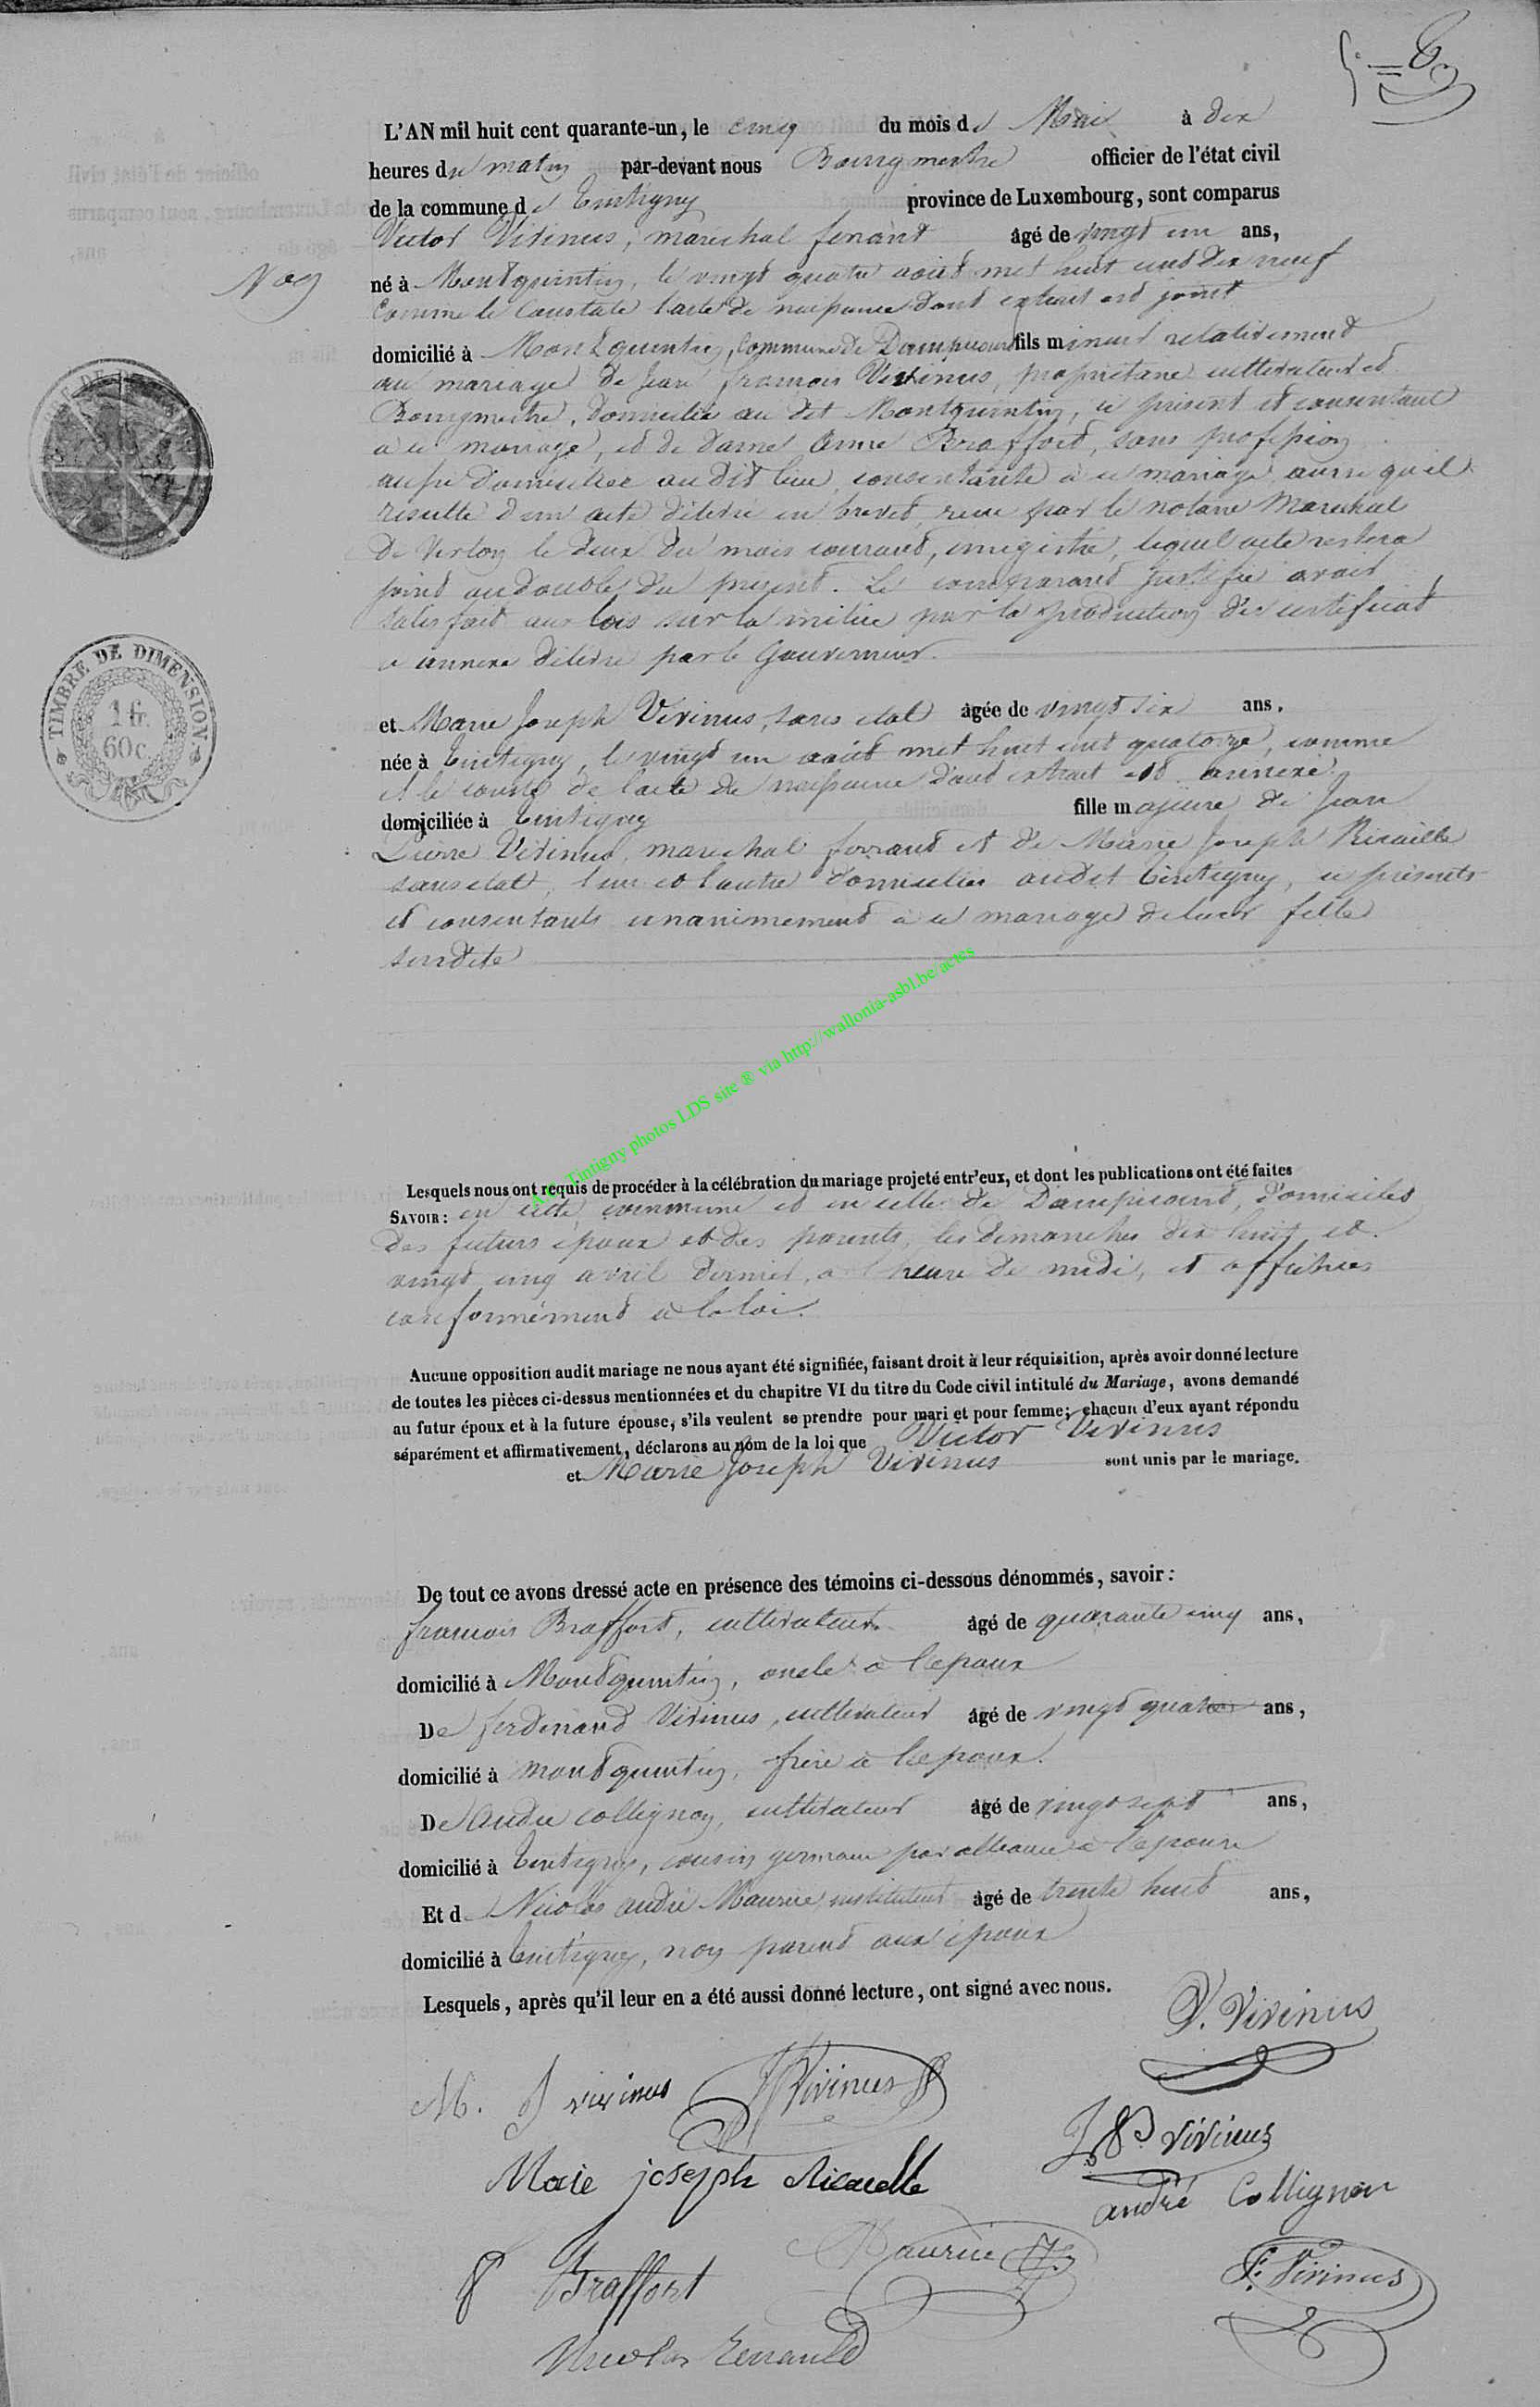 L'AN mil huit cent quarante-un, le cinq du mois de Mai à dix
heures du matin par-devant nous Bourgmestre officier de l'état civil
de la commune de Tintigny province de Luxembourg, sont comparus
Victor Vivinus, marechal ferrant âgé de vingt un ans,
N° 9
né à Montquintin, le vingt quatre août mil huit cent dix neuf
Comme le Constate l'acte de naissance dont extrait est joint
domicilié à Montquintin, commune de Dampicourt fils mineur relativement
au mariage de Jean françois Vivinus, propriétaire cultivateur et
Bourgmestre, domicilié au dit Montquintin, ci présent et consentant
à ce mariage, et de dame Anne Braffort, sans profession
aussi domiciliée audit lieu, consentante à ce mariage ainsi qu'il
résulte d'un acte délivré en brevet, reçu par le notaire Marechal
de Virton le deux du mois courant, enregistré, lequel acte restera
joint au double du présent. Le comparant justifie avoir
satisfait aux lois sur la milice par la production du certificat
ci annexé délivré par le Gouverneur.
TIMBRE DE DIMENSION.
1 fr.
60 c.
et Marie Joseph Vivinus, sans etat âgée de vingt six ans.
née à Tintigny, le vingt un août mil huit cent quatorze, comme
il le conste de l'acte de naissance dont extrait est annexé
domiciliée à Tintigny fille majeure de Jean
Pierre Vivinus, marechal ferrant et de Marie Joseph Ricaille
sans etat, l'un et l'autre domiciliés audit Tintigny, ci présents
et consentants unanimement à ce mariage de leur fille
susdite
A.C. Tintigny photos LDS site ® via http://wallonia-asbl.be/actes
Lesquels nous ont requis de procéder à la célébration du mariage projeté entr'eux, et dont les publications ont été faites
SAVOIR: en cette commune et en celle de Dampicourt, domiciles
des futurs époux et des parents, les dimanches dix huit et
vingt cinq avril dernier, à l'heure de midi, et affichées
conformément à la loi.
Aucune opposition audit mariage ne nous ayant été signifiée, faisant droit à leur réquisition, après avoir donné lecture
de toutes les pièces ci-dessus mentionnées et du chapitre VI du titre du Code civil intitulé du Mariage, avons demandé
au futur époux et à la future épouse, s'ils veulent se prendre pour mari et pour femme; chacun d'eux ayant répondu
séparément et affirmativement, déclarons au nom de la loi que Victor Vivinus
et Marie Joseph Vivinus sont unis par le mariage.
De tout ce avons dressé acte en présence des témoins ci-dessous dénommés, savoir:
françois Braffort, cultivateur âgé de quarante cinq ans,
domicilié à Montquintin, oncle à l'époux
De ferdinand Vivinus, cultivateur âgé de vingt quatre ans,
domicilié à Montquintin, frère à l'époux.
De André collignon, cultivateur âgé de vingt sept ans,
domicilié à Tintigny, cousin germain par alliance à l'épouse
Et de Nicolas andré Maurice, instituteur âgé de trente huit ans,
domicilié à Tintigny, non parent aux époux
Lesquels, après qu'il leur en a été aussi donné lecture, ont signé avec nous.
V. Vivinus
M. J vivinus Vivinus
J P. vivinus
Marie joseph Ricaille
andré Collignon
f Braffort Maurice
F. Vivinus
Nicolas